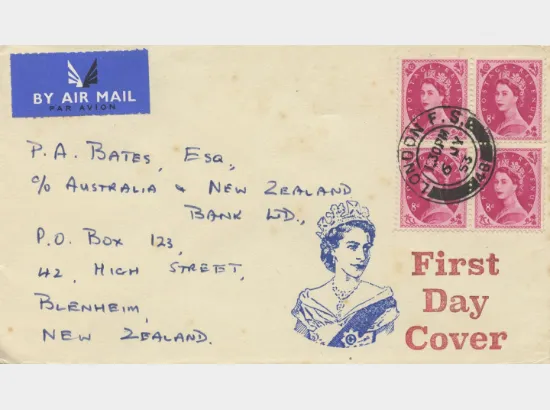 BY AIR MAIL
PAR AVION
P. A. BATES, ESQ.,
c/o AUSTRALIA & NEW ZEALAND
BANK LTD.,
P.O. BOX 123,
42, HIGH STREET,
BLENHEIM,
NEW ZEALAND.
LONDON F.S.
PM
6 JY
53
First
Day
Cover